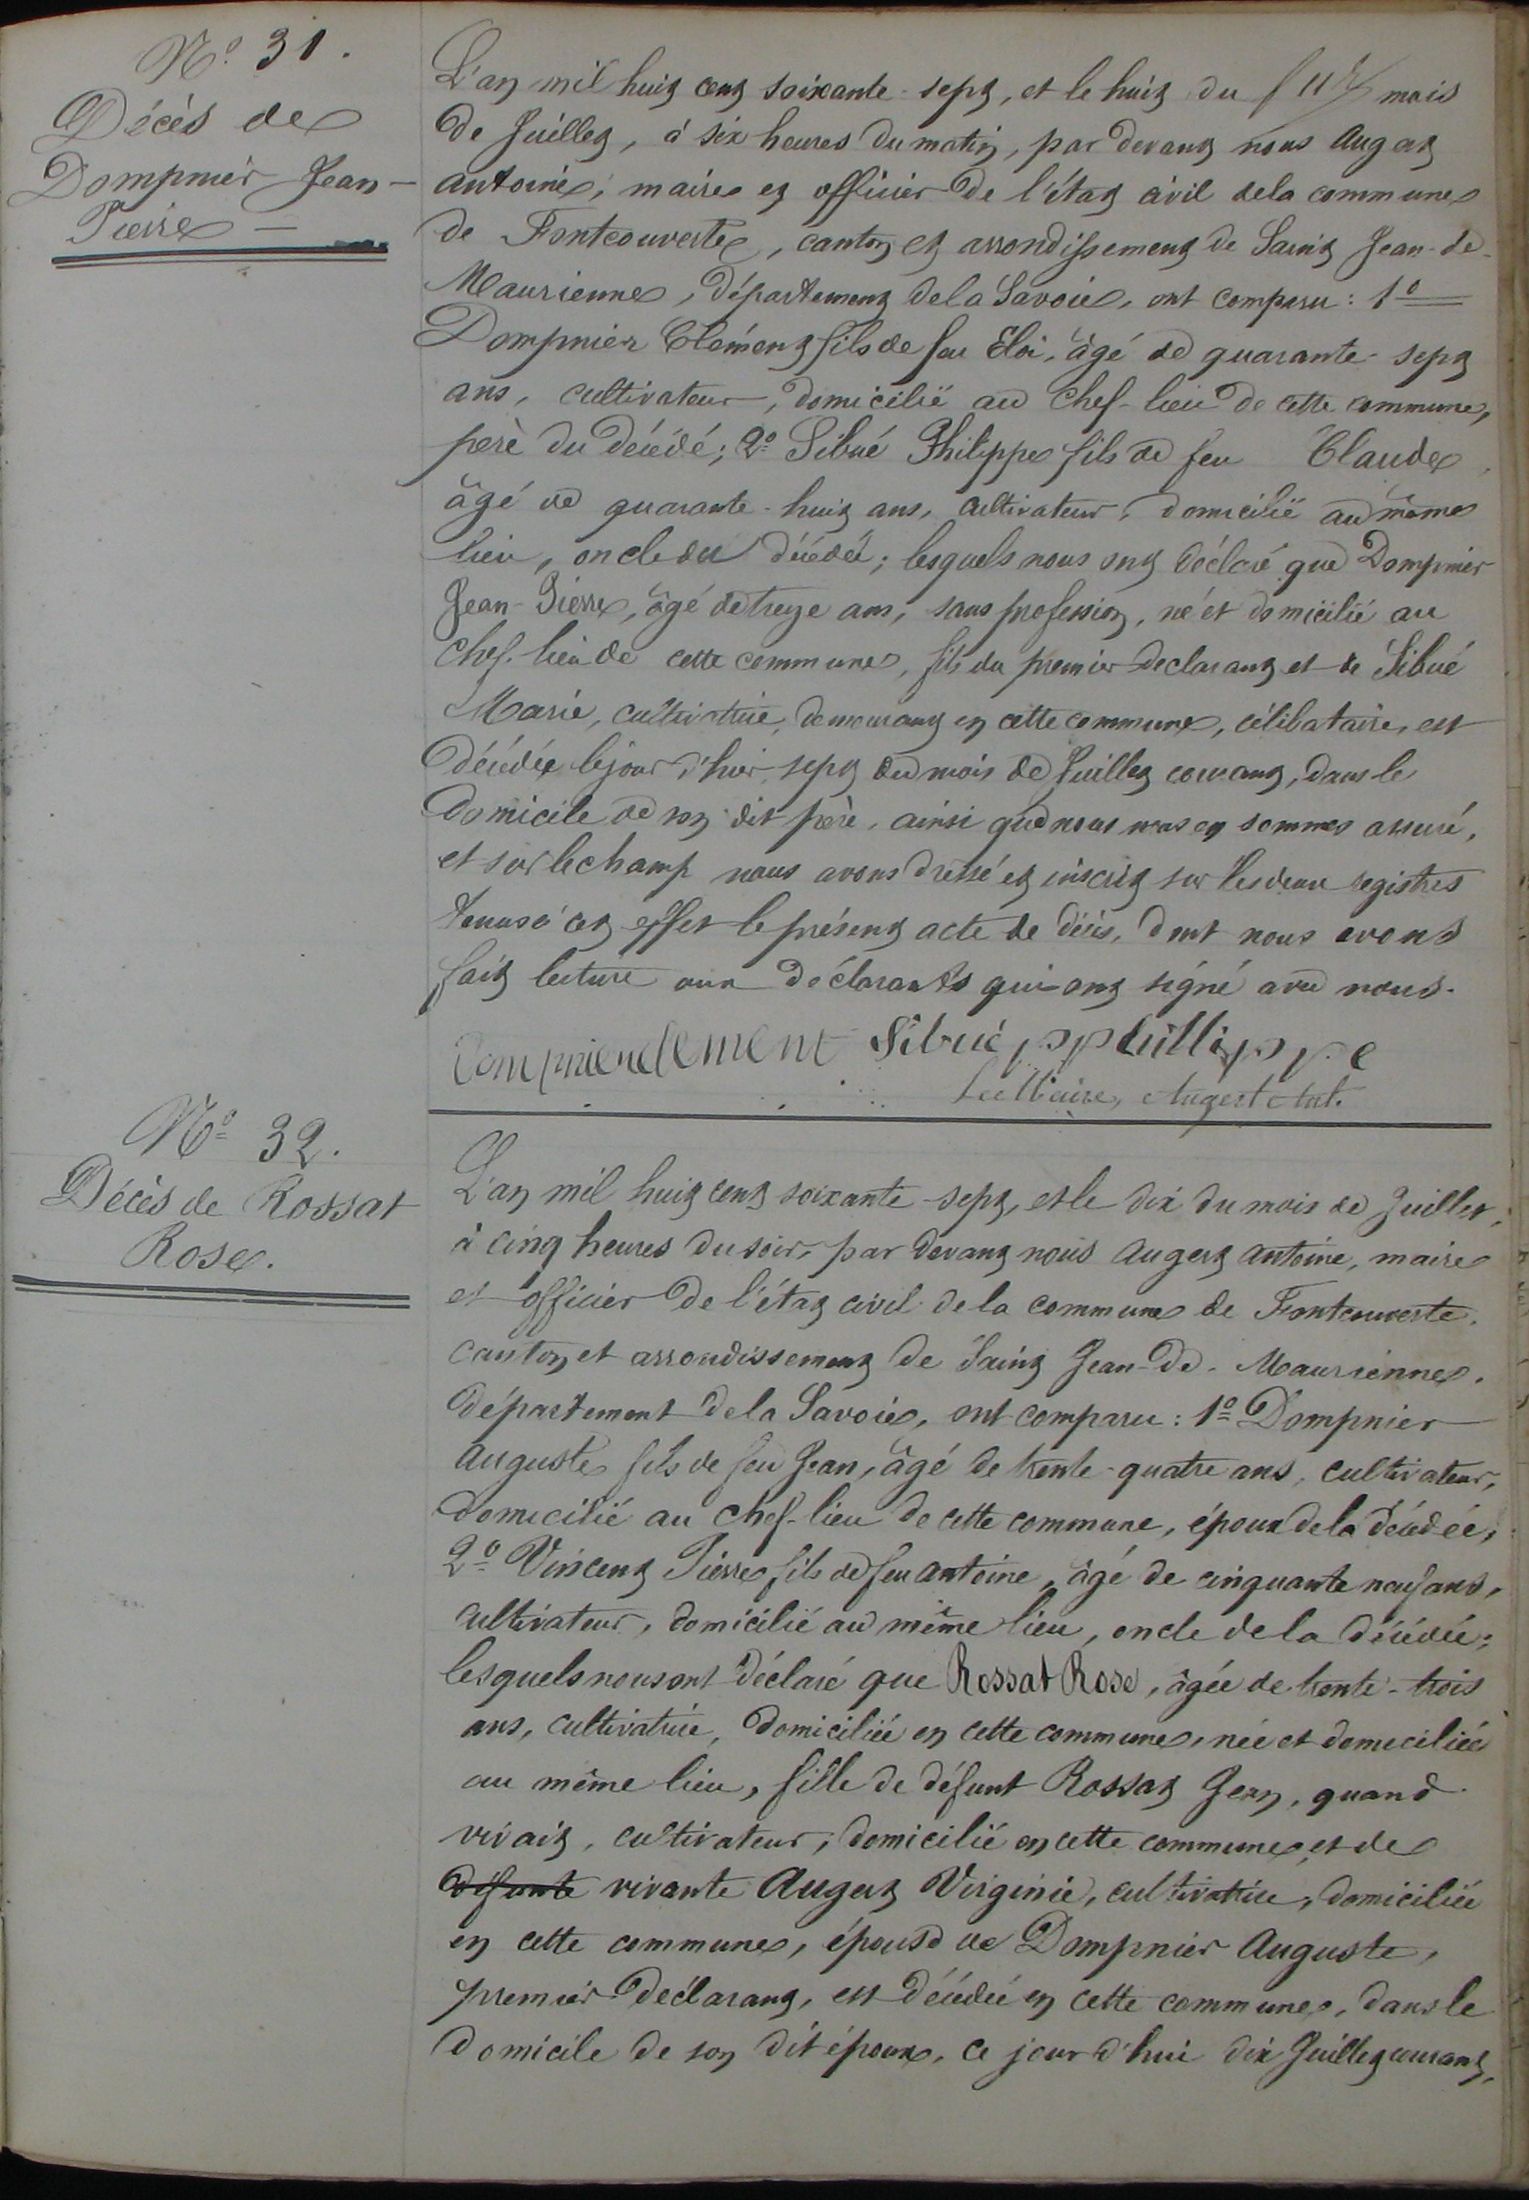 N.º 31.
Décès de
Dompnier Jean-
Pierre
L'an mil huit cent soixante-sept, et le huit du mois
de Juillet, à six heures du matin, par devant nous Augert
Antoine, maire et officier de l'état civil de la commune
de Fontcouverte, canton et arrondissement de Saint Jean-de-
Maurienne, département de la Savoie, ont comparu: 1º
Dompnier Clément fils de feu Eloi, âgé de quarante-sept
ans, cultivateur, domicilié au chef-lieu de cette commune,
père du décédé; 2º Sibué Philippe fils de feu Claude,
âgé de quarante-huit ans, cultivateur, domicilié au même
lieu, oncle du décédé; lesquels nous ont déclaré que Dompnier
Jean-Pierre, âgé de treize ans, sans profession, né et domicilié au
chef-lieu de cette commune, fils du premier déclarant et de Sibué
Marie, cultivatrice, demeurant en cette commune, célibataire, est
décédée le jour d'hier, sept du mois de Juillet courant, dans le
domicile de son dit père, ainsi que nous nous en sommes assuré,
et sur le champ nous avons dressé et inscrit sur les deux registres
tenus à cet effet le présent acte de décès, dont nous avons
fait lecture aux déclarants qui ont signé avec nous.
Dompnier clement Sibué pphillippe
Le Maire, Augert Ant.
Nº 32.
Décès de Rossat
Rose.
L'an mil huit cent soixante-sept, et le dix du mois de Juillet,
à cinq heures du soir, par devant nous Augert Antoine, maire
et officier de l'état civil de la commune de Fontcouverte,
canton et arrondissement de Saint Jean-de-Maurienne,
département de la Savoie, ont comparu: 1º Dompnier
Auguste fils de feu Jean, âgé de trente-quatre ans, cultivateur,
domicilié au chef-lieu de cette commune, époux de la décédée;
2º Vincent Pierre fils de feu Antoine, âgé de cinquante neuf ans,
cultivateur, domicilié au même lieu, oncle de la décédée;
lesquels nous ont déclaré que Rossat Rose, âgée de trente-trois
ans, cultivatrice, domiciliée en cette commune, née et domiciliée
au même lieu, fille de défunt Rossat Jean, quand
vivait, cultivateur, domicilié en cette commune, et de
défunte vivante Augert Virginie, cultivatrice, domiciliée
en cette commune, épouse de Dompnier Auguste,
premier déclarant, est décédée en cette commune, dans le
domicile de son dit époux, ce jour d'hui dix Juillet courant,